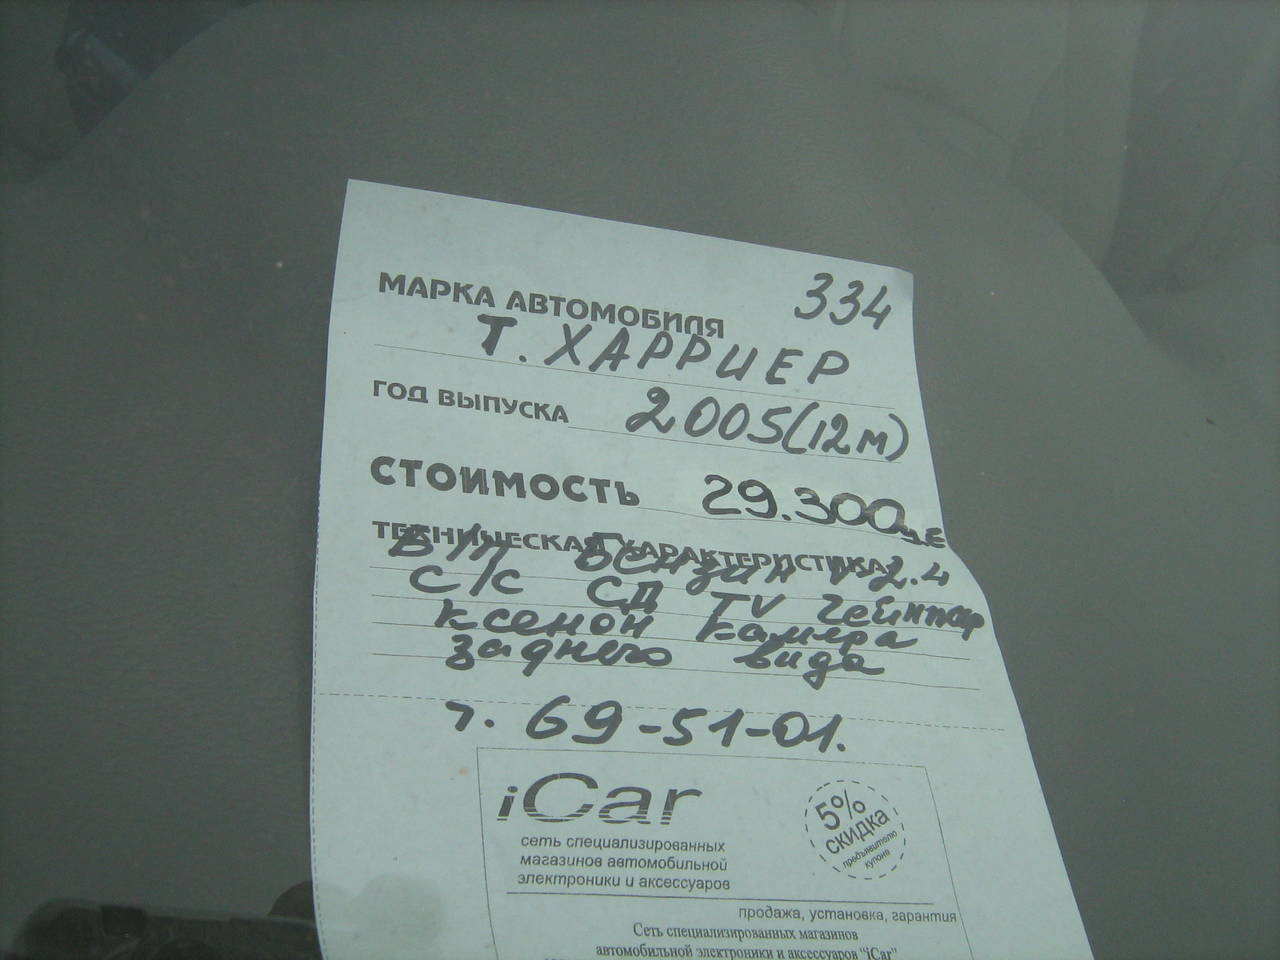 334
МАРКА АВТОМОБИЛЯ
Т. ХАРРИЕР
ГОД ВЫПУСКА 2005(12м)
СТОИМОСТЬ 29.300 у.е
ТЕХНИЧЕСКАЯ ХАРАКТЕРИСТИКА
Б/П бензин V-2.4
с/с СД TV чейнжер
ксенон камера
заднего вида
т. 69-51-01.
iCar
сеть специализированных
магазинов автомобильной
электроники и аксессуаров
5%
СКИДКА
предъявителю
купона
продажа, установка, гарантия
Сеть специализированных магазинов
автомобильной электроники и аксессуаров "iCar"